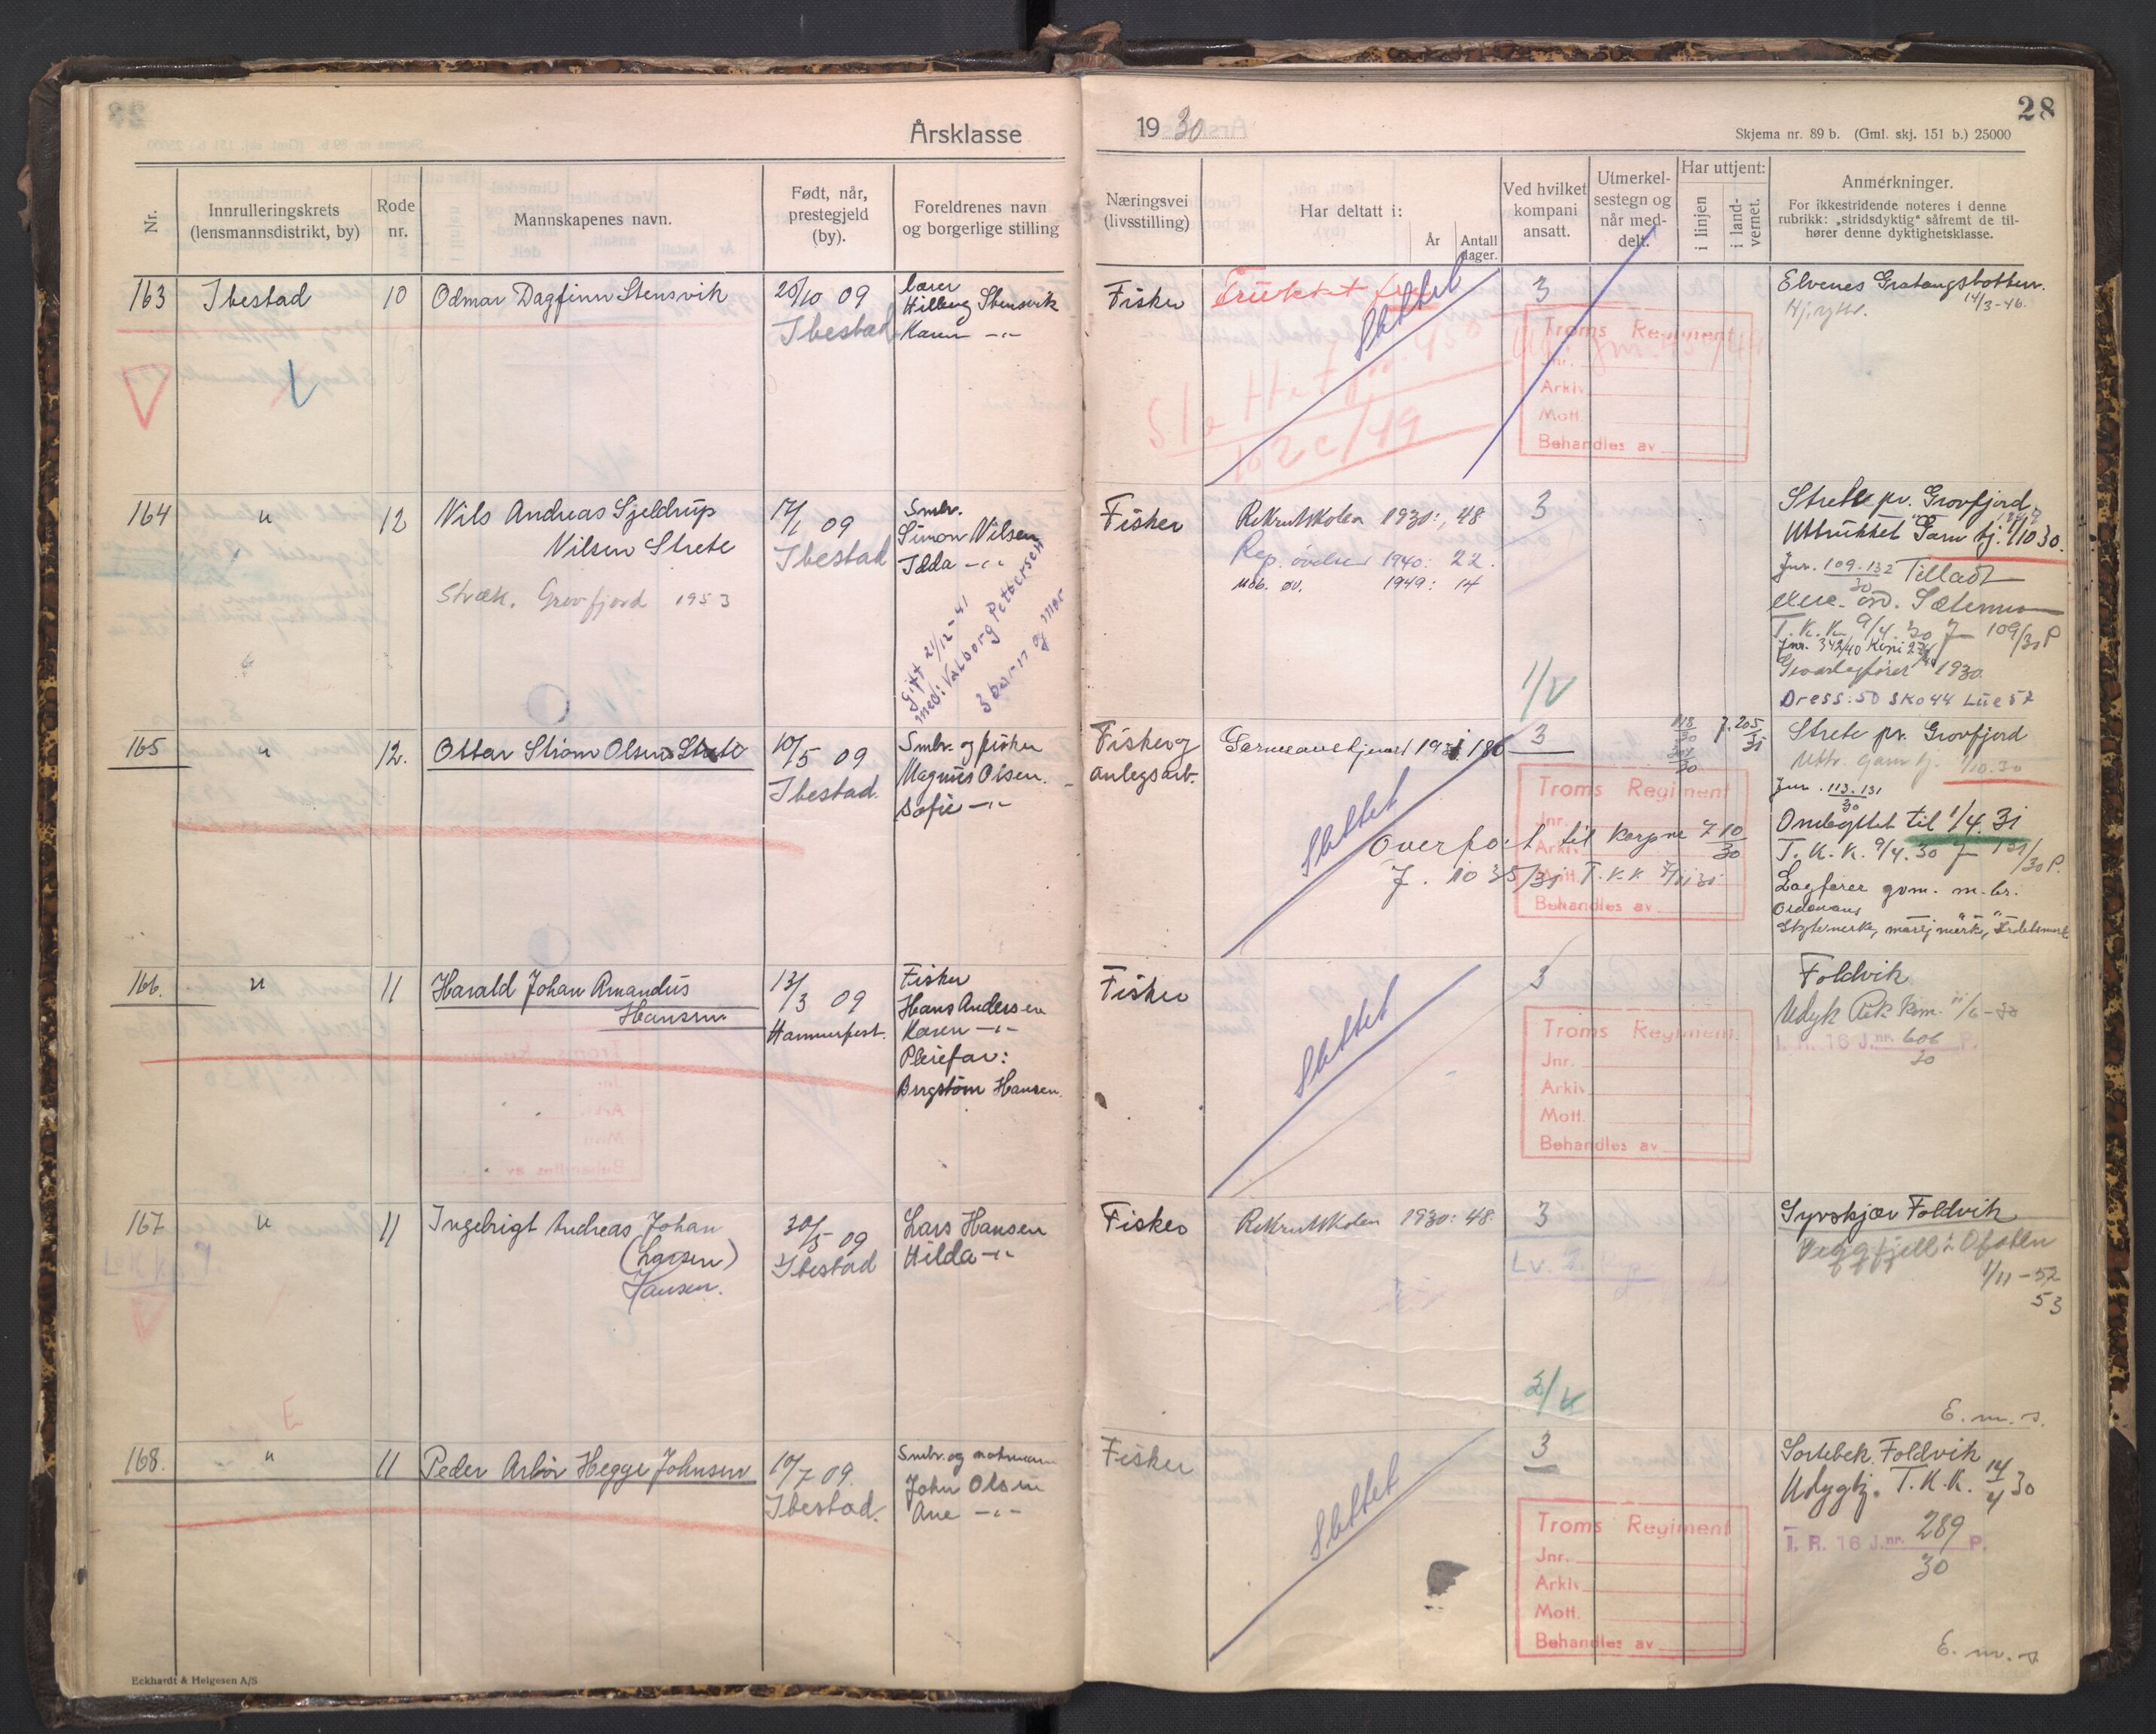 28
Årsklasse
1930
Skjema nr. 89 b. (Gml. skj. 151 b.) 25000
Nr.
Innrulleringskrets
(lensmannsdistrikt, by)
Rode
nr.
Mannskapenes navn.
Født, når,
prestegjeld
(by).
Foreldrenes navn
og borgerlige stilling
Næringsvei
(livsstilling)
Har deltatt i:
År
Antall
dager.
Ved hvilket
kompani
ansatt.
Utmerkel-
sestegn og
når med-
delt.
Har uttjent:
i linjen
i land-
vernet.
Anmerkninger.
For ikkestridende noteres i denne
rubrikk: „stridsdyktig“ såfremt de til-
hører denne dyktighetsklasse.
163 Ibestad 10 Odmar Dagfinn Stensvik
20/10 09
Ibestad
Lærer
Hilberg Stensvik
Karen -"-
Fisker
Slettet
3
Troms Regiment
Jnr.
Arkiv
Mott.
Behandles av
Elvenes Gratangsbotten.
14/3-46.
164 " 12 Nils Andreas Gjeldrup
Nilsen Strete
Stræk. Grovfjord 1953
17/1 09
Ibestad
Smbr.
Simon Nilsen
Ilda -"-
Gift 21/12-41
med: Valborg Pettersen
3 barn og mor
Fisker
Rekrutskolen 1930: 48
Rep. øvelser 1940: 22.
Mob. øv. 1949: 14
3
1/V
Strete pr. Grovfjord
Uttrukket Garn tj. 1/10 30.
Jnr. 109.132/30 Tilladt
T. K. K. 9/4 30 J 109/30 P
Jnr. 342/40
1930
Dress: 50 Sko 44 Lue 57
165 " 12. Ottar Strøm Olsen Strete
10/5 09
Ibestad.
Smbr. og fisker
Magnus Olsen.
Sofie -"-
Fisker og
anlegsarb.
Garnisonstjenest 1931 180
Slettet
3
118/30
J. 205/31
Troms Regiment
Jnr.
Arkiv
Mott.
Behandles av
Overført til Korpne 7 10/30
J. 1035/31 T.K.K.
Strete pr. Grovfjord
Uttr. Garn tj. 1/10.30
Jnr. 113.131/30
Ombyttet til 1/4. 31
T. K. K. 9/4. 30 J 131/30 P.
Lagfører gom. m. br.
Ordonans " "
Skytemerke, marsjmerke, Idretsmerke
166. " 11 Harald Johan Amandus
Hansen
13/3 09
Hammerfest.
Fisker
Hans Andersen
Karen -"-
Pleiefar:
Bergstøm Hansen.
Fisker
Slettet
3
Troms Regiment.
Jnr.
Arkiv
Mott.
Behandles av
Foldvik
Udyk Rek kom. 11/6-30
I. R. 16 J.nr. 606/30 P.
167 " 11 Ingebrigt Andreas Johan
(Larsen)
Hansen.
30/5 09
Ibestad
Lars Hansen
Hilda -"-
Fisker
Rekrutskolen 1930: 48.
3
Lv. 2.
2/V
Syvskjær Foldvik
Veggfjell i Ofoten
1/11-52
53
E. m. s.
168. " 11 Peder Arbør Hegge Johnsen
10/7 09.
Ibestad.
Smbr. og notmann
John Olsen
Ane -"-
Fisker
Slettet
3
Troms Regiment
Jnr.
Arkiv
Mott.
Behandles av
Sortebek. Foldvik
Udygtj. T. K. K. 14/4 30
I. R. 16 J.nr. 289/30 P.
E. m. s.
Eckhardt & Helgesen A/S